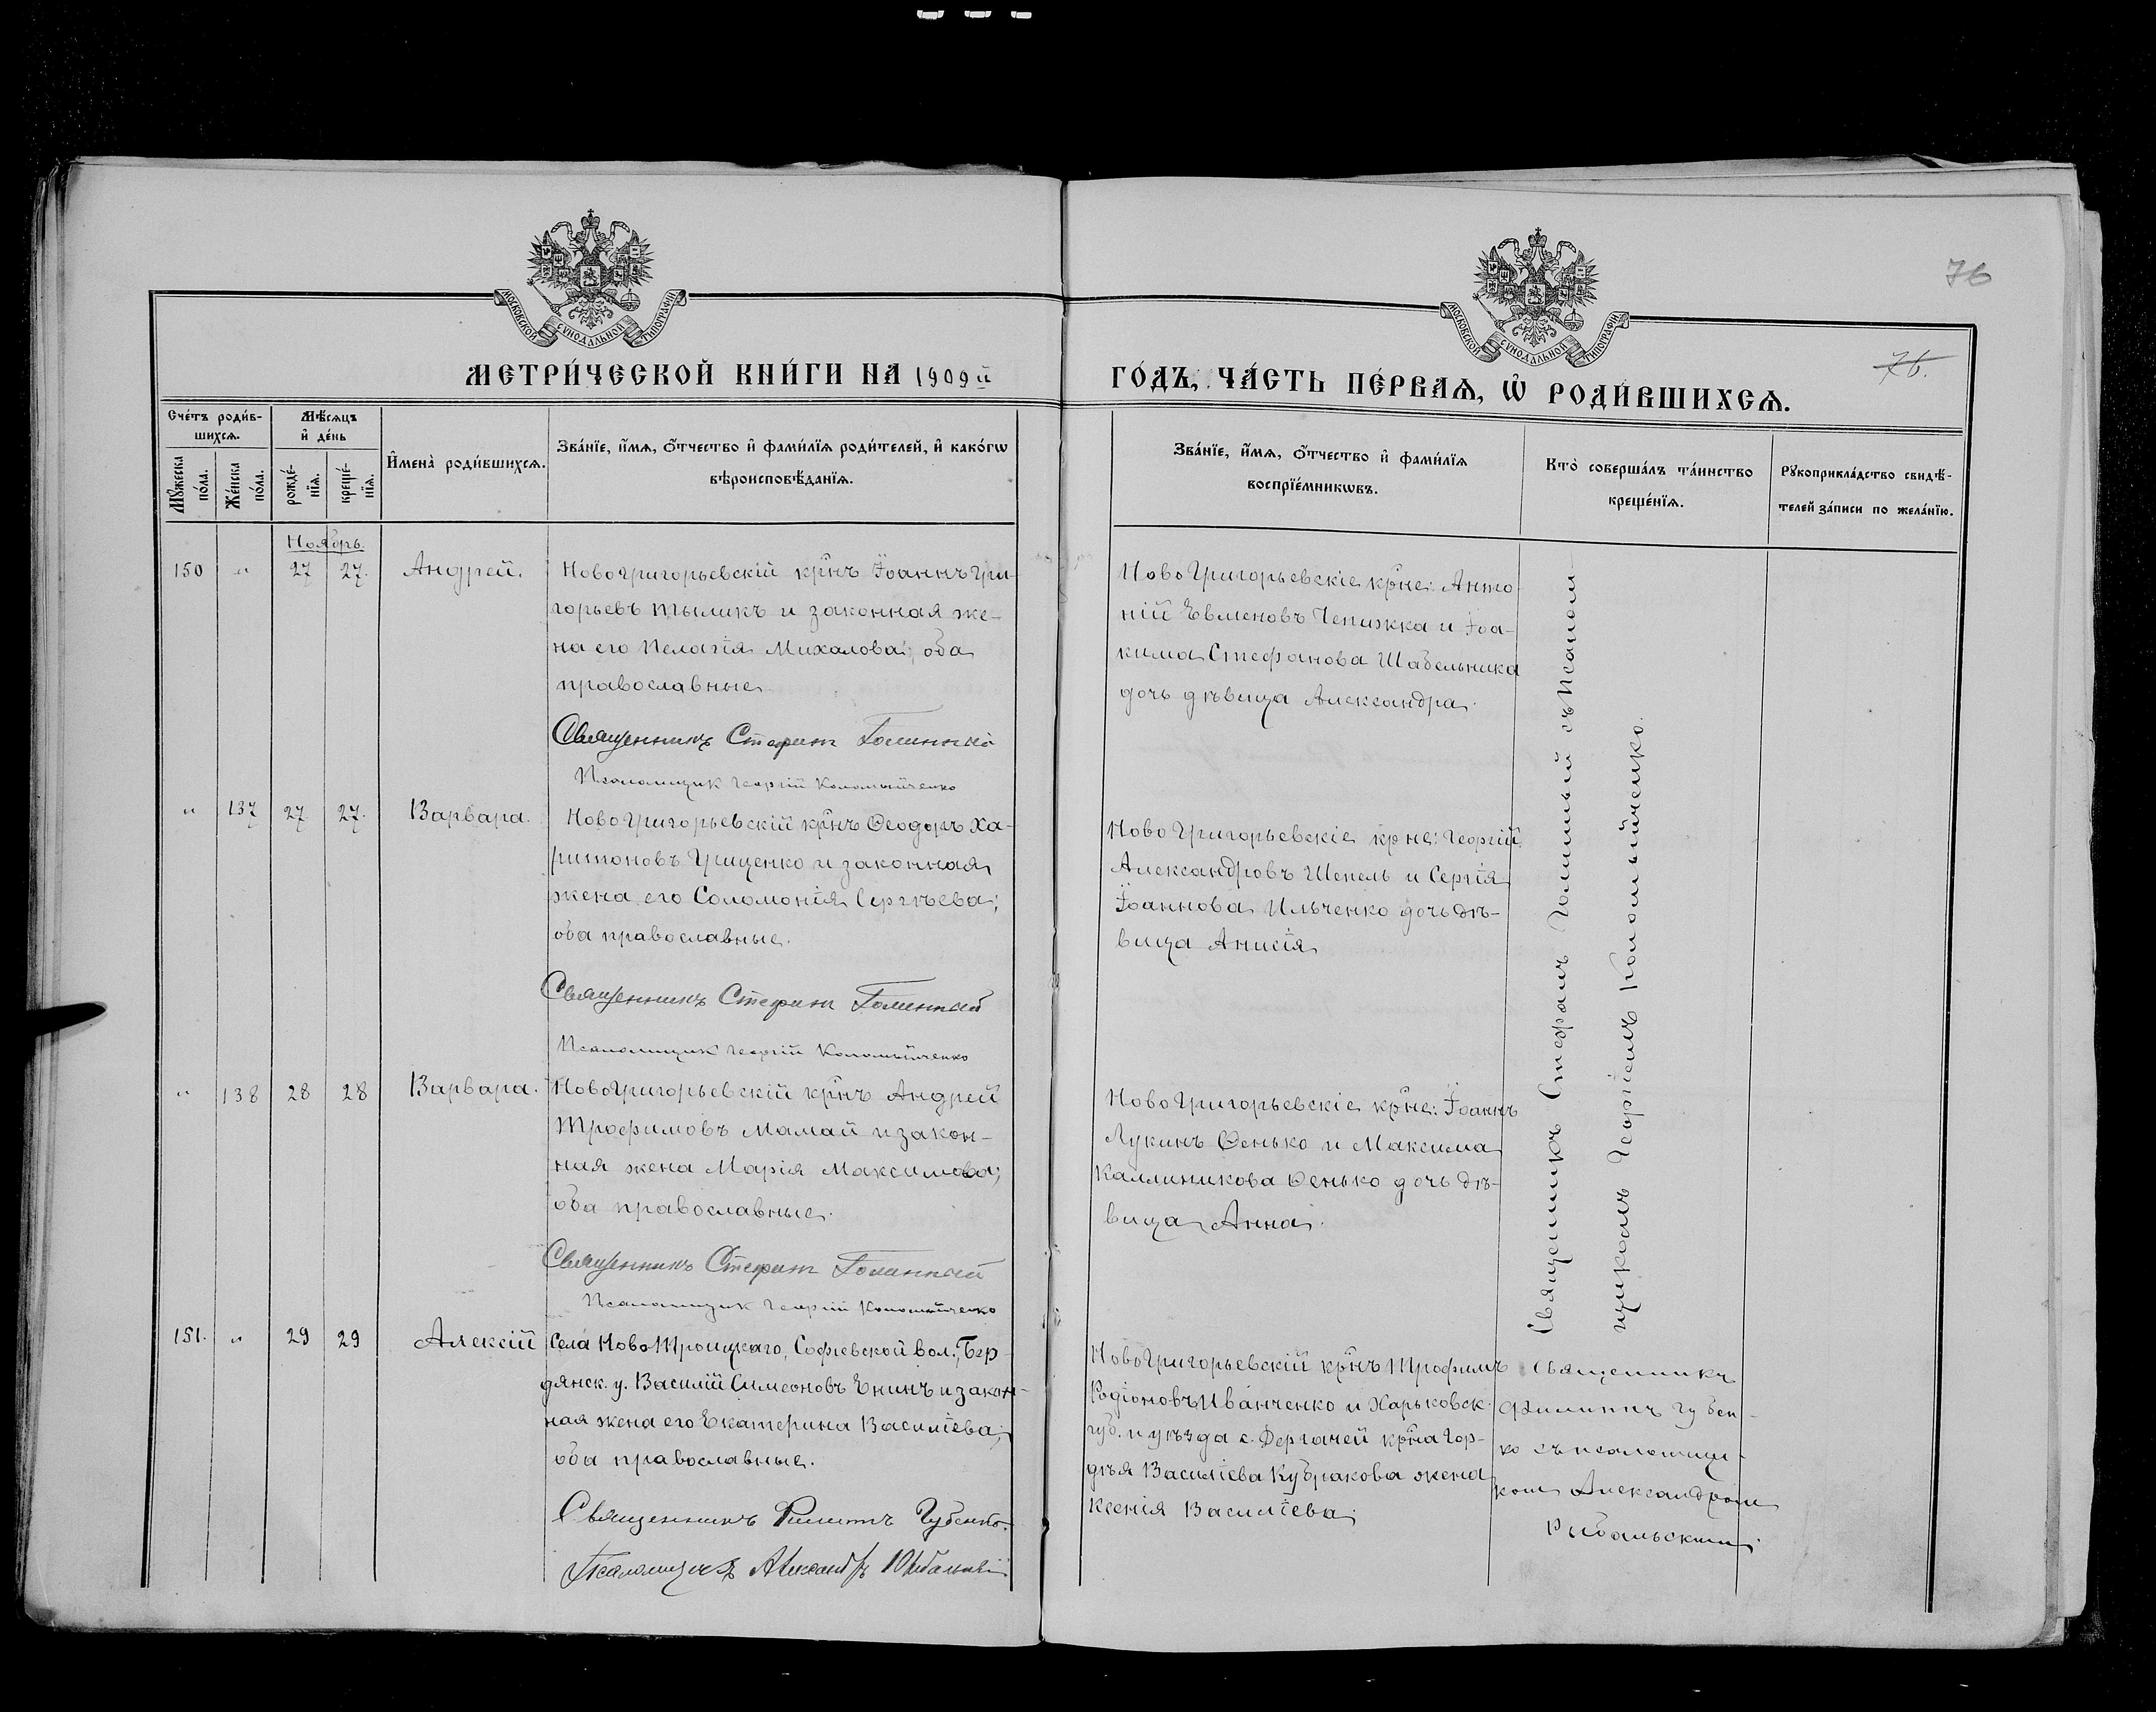 76
76.
МОСКОВСКОЙ СѴНОДАЛЬНОЙ ТИПОГРАФІИ
МОСКОВСКОЙ СѴНОДАЛЬНОЙ ТИПОГРАФІИ
МЕТРИ́ЧЕСКОЙ КНИ́ГИ НА 1909й
ГО́ДЪ, ЧА́СТЬ ПЕ́РВАѦ, Ѡ҆ РОДИ́ВШИХСѦ.
Сче́тъ роди́в-
шихсѧ.
Мꙋ́жеска
по́ла.
Же́нска
по́ла.
Мѣ́сѧцъ
и҆ де́нь
рожде́-
нїѧ.
креще́-
нїѧ.
И҆мена̀ роди́вшихсѧ.
Зва́нїе, и҆́мѧ, ѻ҆́тчество и҆ фами́лїѧ роди́телей, и҆ како́гѡ
вѣроисповѣ́данїѧ.
Зва́нїе, и҆́мѧ, ѻ҆́тчество и҆ фами́лїѧ
воспрїе́мникѡвъ.
Кто̀ соверша́лъ та́инство
креще́нїѧ.
Рꙋкоприкла́дство свидѣ́-
телей за́писи по жела́нїю.
Ноябрь.
150 " 27 27. Андрей.
Новогригорьевскій кр͠нъ Іоаннъ Гри-
горьевъ Тымикъ и законная же-
на его Пелагія Михалова; оба
православные
Священникъ Стефан Голинный
Псаломщик Георгій Коломыйченко
НовоГригорьевскіе кр͠не: Анто-
ній Евменовъ Чепижка и Іоа-
кима Стефанова Шабельника
дочь дѣвица Александра.
" 137 27 27. Варвара.
НовоГригорьевскій кр͠нъ Ѳеодоръ Ха-
ритоновъ Грищенко и законная
жена его Соломонія Сергѣева;
оба православные.
Священникъ Стефан Голинный
Псаломщик Георгій Коломыйченко
НовоГригорьевскіе кр͠не: Георгій
Александровъ Шепель и Сергія
Іоаннова Ильченко дочь дѣ-
вица Анисія
" 138 28 28 Варвара.
НовоГригорьевскій кр͠нъ Андрей
Трофимовъ Мамай и закон-
ная жена Марія Максимова;
оба православные.
Священникъ Стефан Голинный
Псаломщик Георгій Коломыйченко
НовоГригорьевскіе кр͠не: Іоаннъ
Лукинъ Ѳенько и Максима
Каллиникова Ѳенько дочь дѣ-
вица Анна.
Священникъ Стефанъ Голинный съ Псалом
щикомъ Георгіемъ Коломыйченко.
151. " 29 29 Алексій
Села НовоТроицкаго, Софіевской вол., Бер-
дянск. у. Василій Симеоновъ Енинъ и закон-
ная жена его Екатерина Василіева;
оба православные.
Священникъ Филиппъ Губенко.
Псаломщикъ Александръ Рибальскій
НовоГригорьевскій кр͠нъ Трофимъ
Родіоновъ Иванченко и Харьковск.
губ. и уѣзда с. Дергачей кр͠на Гор-
дѣя Василіева Кубракова жена
Ксенія Василіева
Священникъ
Филиппъ Губен-
ко съ псаломщи-
ком Александром
Рибальским